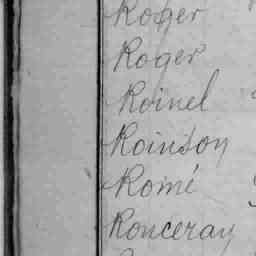 Roger
Roger
Roinel
Roinson
Romé
Ronceray